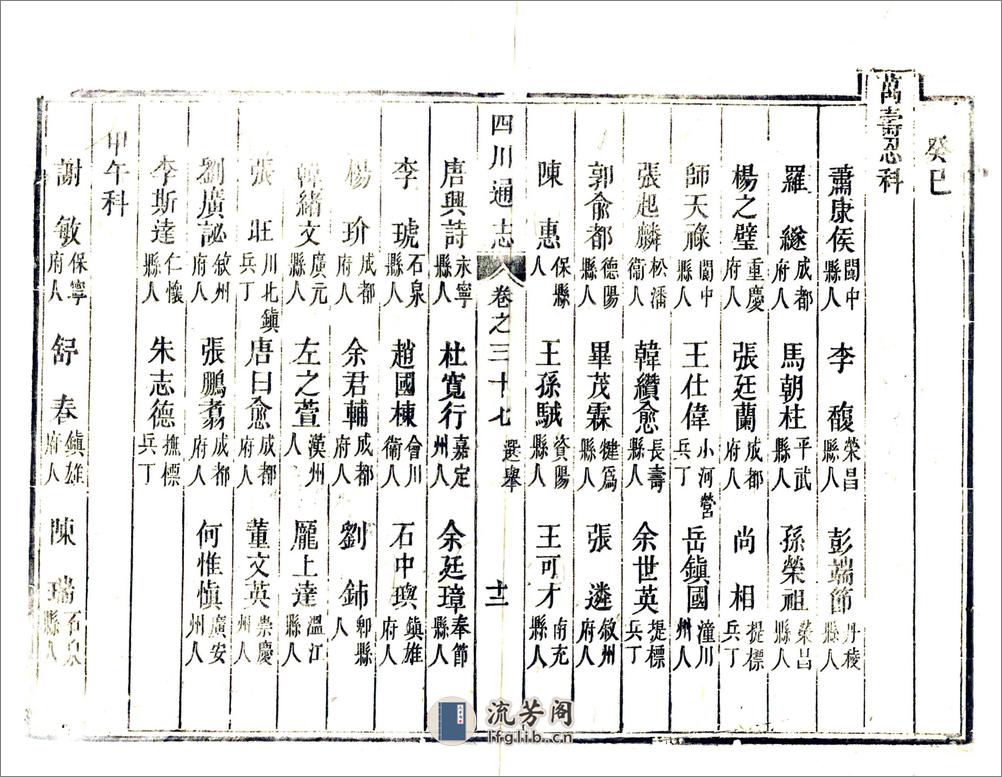 癸巳
萬壽恩科
蕭康侯閬中縣人 李馥榮昌縣人 彭端節丹稜縣人
羅繸成都府人 馬朝柱平武縣人 孫榮祖榮昌縣人
楊之璧重慶府人 張廷蘭成都府人 尚相提標兵丁
師天祿閬中縣人 王仕偉小河營兵丁 岳鎮國潼川州人
張起麟松潘衛人 韓纘愈長壽縣人 余世英提標兵丁
郭俞都德陽縣人 畢茂霖犍為縣人 張遴敘州府人
陳惠保縣人 王孫駥資陽縣人 王可才南充縣人
四川通志 卷之三十七 選舉 十二
唐興詩永寧縣人 杜寬行嘉定州人 余廷璋奉節縣人
李琥石泉縣人 趙國棟會川衛人 石中璵鎮雄府人
楊玠成都府人 余君輔成都府人 劉鈽郫縣人
韓緒文廣元縣人 左之萱漢州人 龐上達溫江縣人
張旺川北鎮兵丁 唐曰愈成都府人 董文英崇慶州人
劉廣諡敘州府人 張鵬翥成都府人 何惟慎廣安州人
李斯達仁懷縣人 朱志德撫標兵丁
甲午科
謝敏保寧府人 舒春鎮雄府人 陳瑞石泉縣人
流芳阁
lfglib.cn